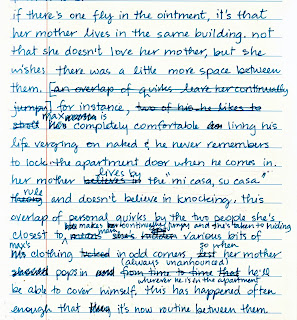 if there's one fly in the ointment, it's that
her mother lives in the same building. not
that she doesn't love her mother, but she
wishes there was a little more space between
them. [an overlap of quirks leave her continually
jumpy] for instance, two of his he likes to
max is
stroll he's completely comfortable living his
life verging on naked & he never remembers
to lock the apartment door when he comes in.
lives by
her mother believes in the "mi casa, su casa"
rule
and doesn't believe in knocking. this
overlap of personal quirks by the two people she's
makes her continually jumpy and she's taken to hiding
closest to she's hidden various bits of
max's so when
his clothing tucked in odd corners, her mother
(always unannounced)
pops in and from time to time that he'll
wherever he is in the apartment
be able to cover himself. this has happened often
enough that it's now routine between them